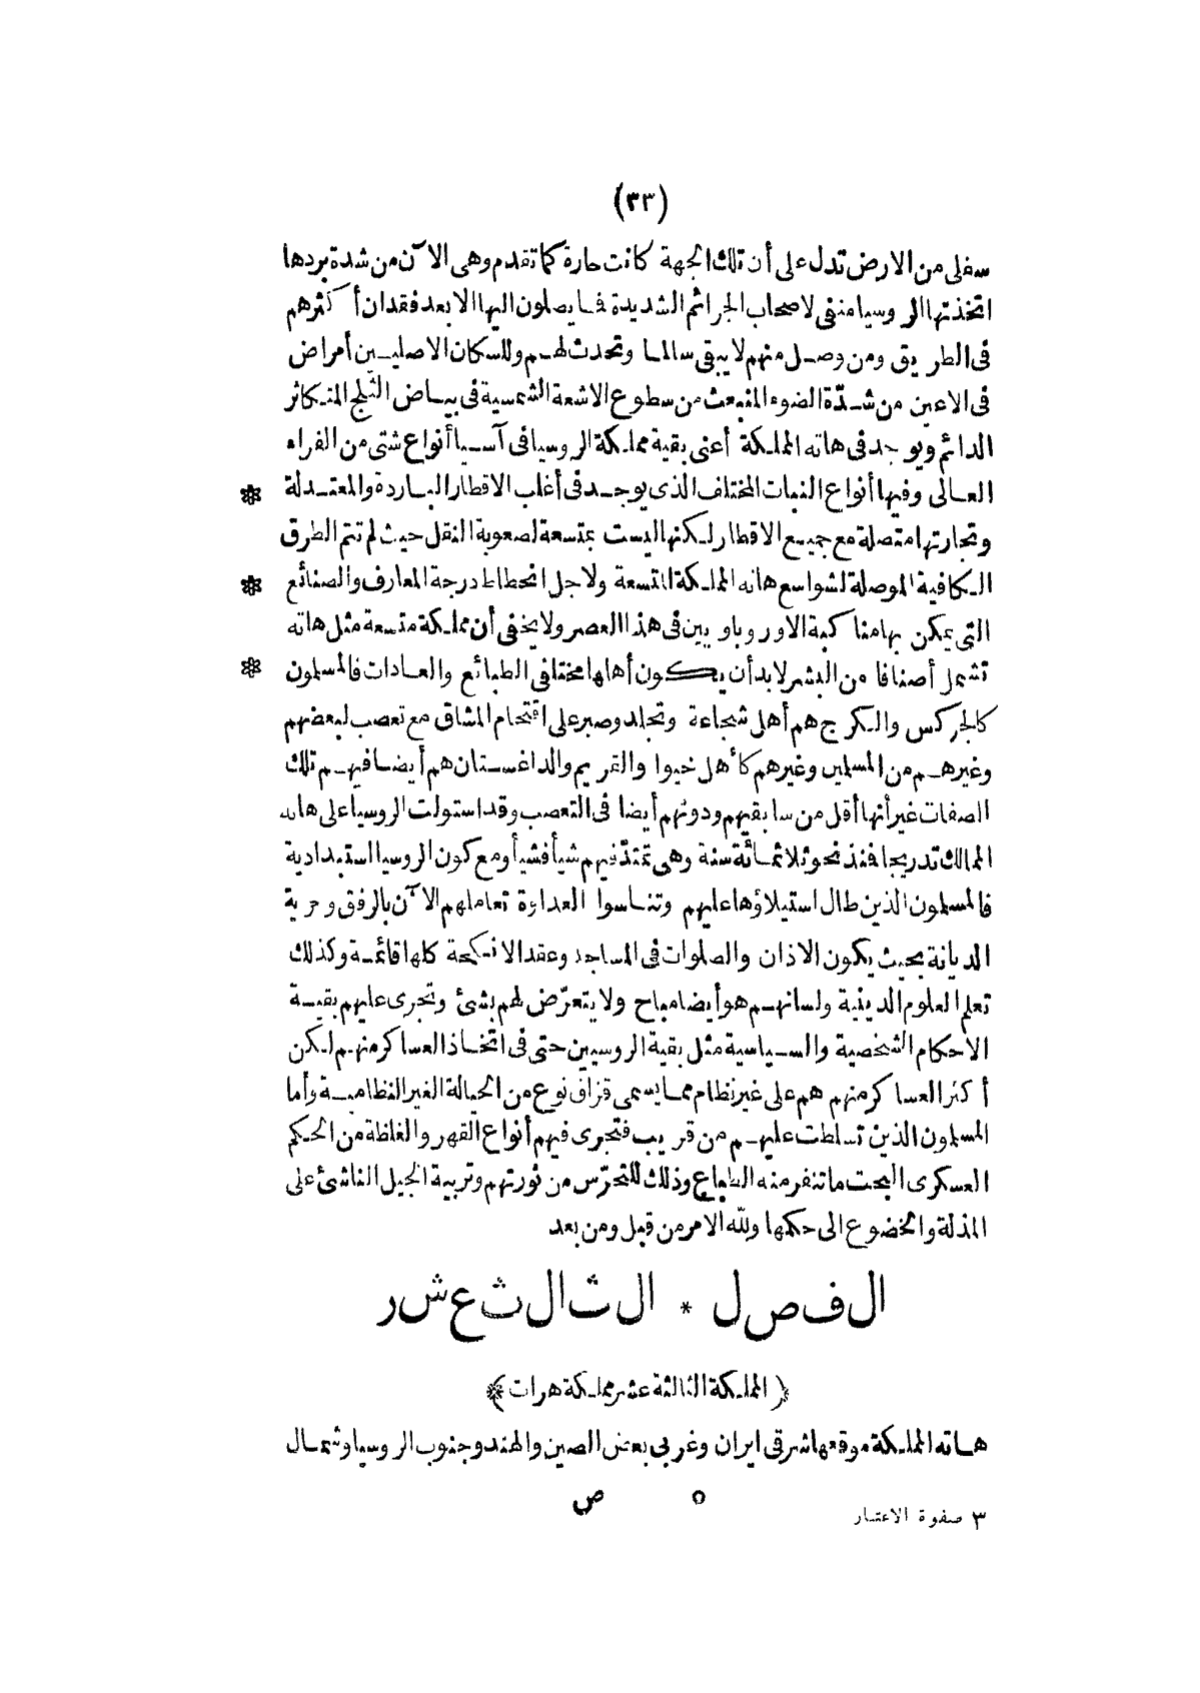 (٣٣)
سفلى من الارض تدل على أن تلك الجهة كانت حارة كما تقدم وهى الآن من شدة بردها
اتخذتها الروسيا منفى لاصحاب الجرائم الشديدة فما يصلون اليها الا بعد فقدان أكثرهم
فى الطريق ومن وصل منهم لا يبقى سالما وتحدث لهم وللسكان الاصليين أمراض
فى الاعين من شدّة الضوء المنبعث من سطوع الاشعة الشمسية فى بياض الثلج المتكاثر
الدائم ويوجد فى هاته المملكة أعنى بقية مملكة الروسيا فى آسيا أنواع شتى من الفراء
العالى وفيها أنواع النبات المختلف الذى يوجد فى أغلب الاقطار الباردة والمعتدلة *
وتجارتها متصلة مع جميع الاقطار لكنها ليست بمتسعة لصعوبة النقل حيث لم تتم الطرق
الكافية الموصلة لشواسع هاته المملكة المتسعة ولاجل انحطاط درجة المعارف والصنائع *
التى يمكن بها مناكبة الاوروباويين فى هذا العصر ولا يخفى أن مملكة متسعة مثل هاته
تشمل أصنافا من البشر لابد أن يكون أهلها مختلفى الطبائع والعادات فالمسلمون *
كالجركس والكرج هم أهل شجاعة وتجلد وصبر على اقتحام المشاق مع تعصب لبعضهم
وغيرهم من المسلمين وغيرهم كأهل خيوا والقريم والداغستان هم أيضا فيهم تلك
الصفات غير أنها أقل من سابقيهم ودونهم أيضا فى التعصب وقد استولت الروسيا على هاته
الممالك تدريجا فمنذ نحو ثلاثمائة سنة وهى تمتدّ فيهم شيأ فشيأ ومع كون الروسيا استبدادية
فالمسلمون الذين طال استيلاؤها عليهم وتناسوا العداوة تعاملهم الآن بالرفق وحرية
الديانة بحيث يكون الاذان والصلوات فى المساجد وعقد الانكحة كلها قائمة وكذلك
تعلم العلوم الدينية ولسانهم هو أيضا مباح ولا يتعرّض لهم بشئ وتجرى عليهم بقية
الاحكام الشخصية والسياسية مثل بقية الروسيين حتى فى اتخاذ العساكر منهم لكن
أكثر العساكر منهم هم على غير نظام مما يسمى قزاق نوع من الخيالة الغير النظامية وأما
المسلمون الذين تسلطت عليهم من قريب فتجرى فيهم أنواع القهر والغلظة من الحكم
العسكرى البحت ما تنفر منه الطباع وذلك للتحرّس من ثورتهم وتربية الجيل الناشئ على
المذلة والخضوع الى حكمها ولله الامر من قبل ومن بعد
الفصل * الثالث عشر
﴿المملكة الثالثة عشر مملكة هرات﴾
هاته المملكة موقعها شرقى ايران وغربى بعض الصين والهند وجنوب الروسيا وشمال
٣ صفوة الاعتبار ٥ ص